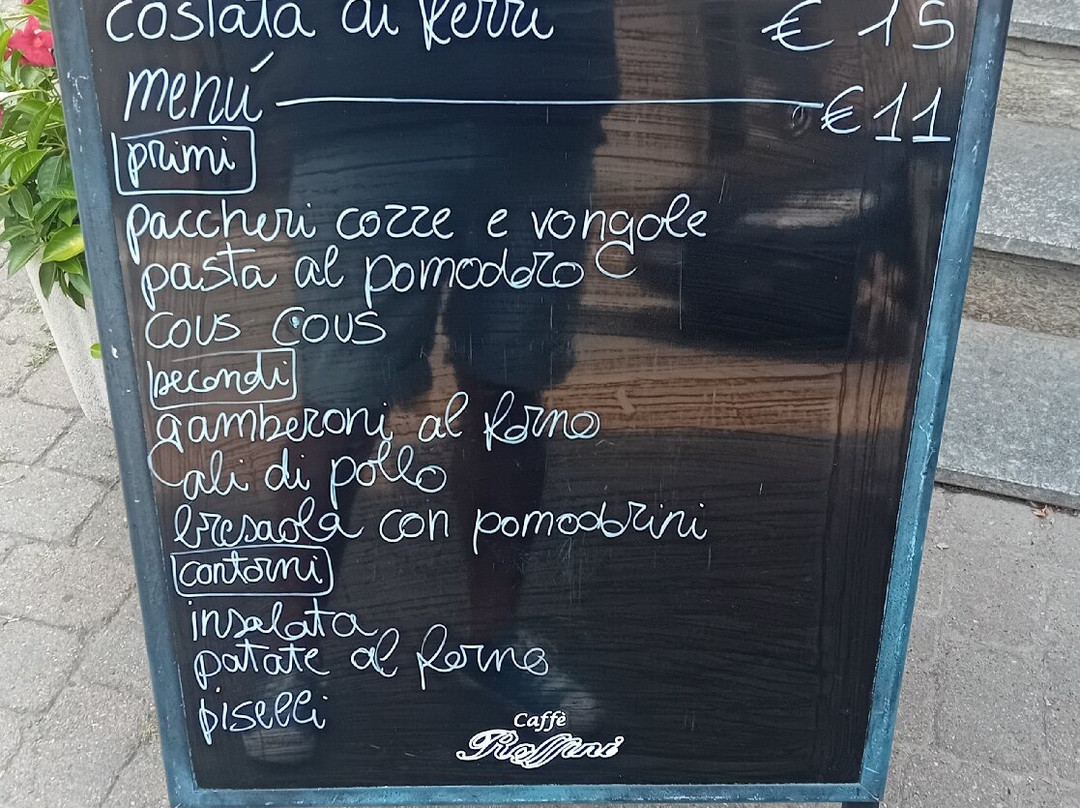 costata di ferri € 15
menú € 11
primi
paccheri cozze e vongole
pasta al pomodoro
cous cous
secondi
gamberoni al forno
ali di pollo
bresaola con pomodorini
contorni
insalata
patate al forno
piselli
Caffè